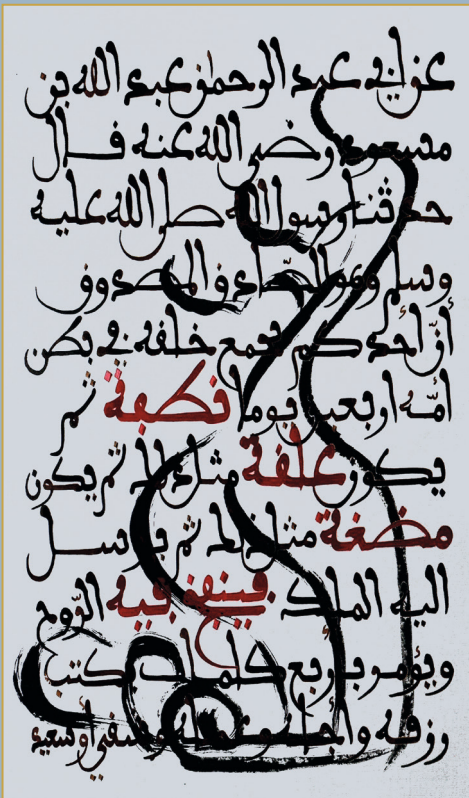 عن أبي عبد الرحمن عبد الله بن
مسعود رضي الله عنه قال
حدثنا رسول الله صلى الله عليه
وسلم وهو الصادق المصدوق
أنّ أحدكم يجمع خلقه في بطن
أمّه أربعين يوما نطفة ثم
يكون علقة مثل ذلك ثم يكون
مضغة مثل ذلك ثم يرسل
اليه الملك فينفخ فيه الرّوح
ويؤمر بأربع كلمات بكتب
رزقه وأجله وعمله وشقي أو سعيد